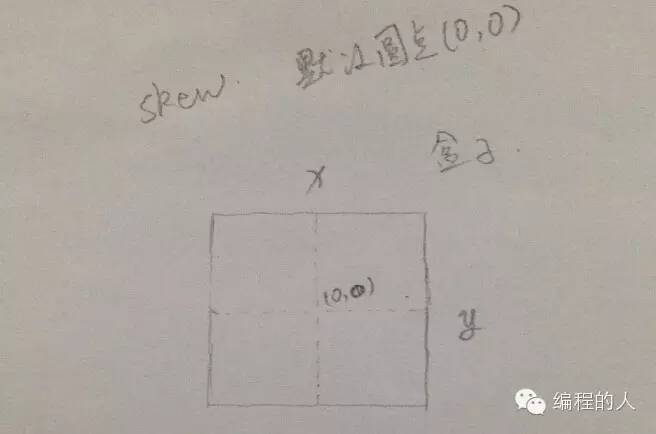 skew. 默认圆点(0,0)
盒子.
x
(0,0)
y
编程的人